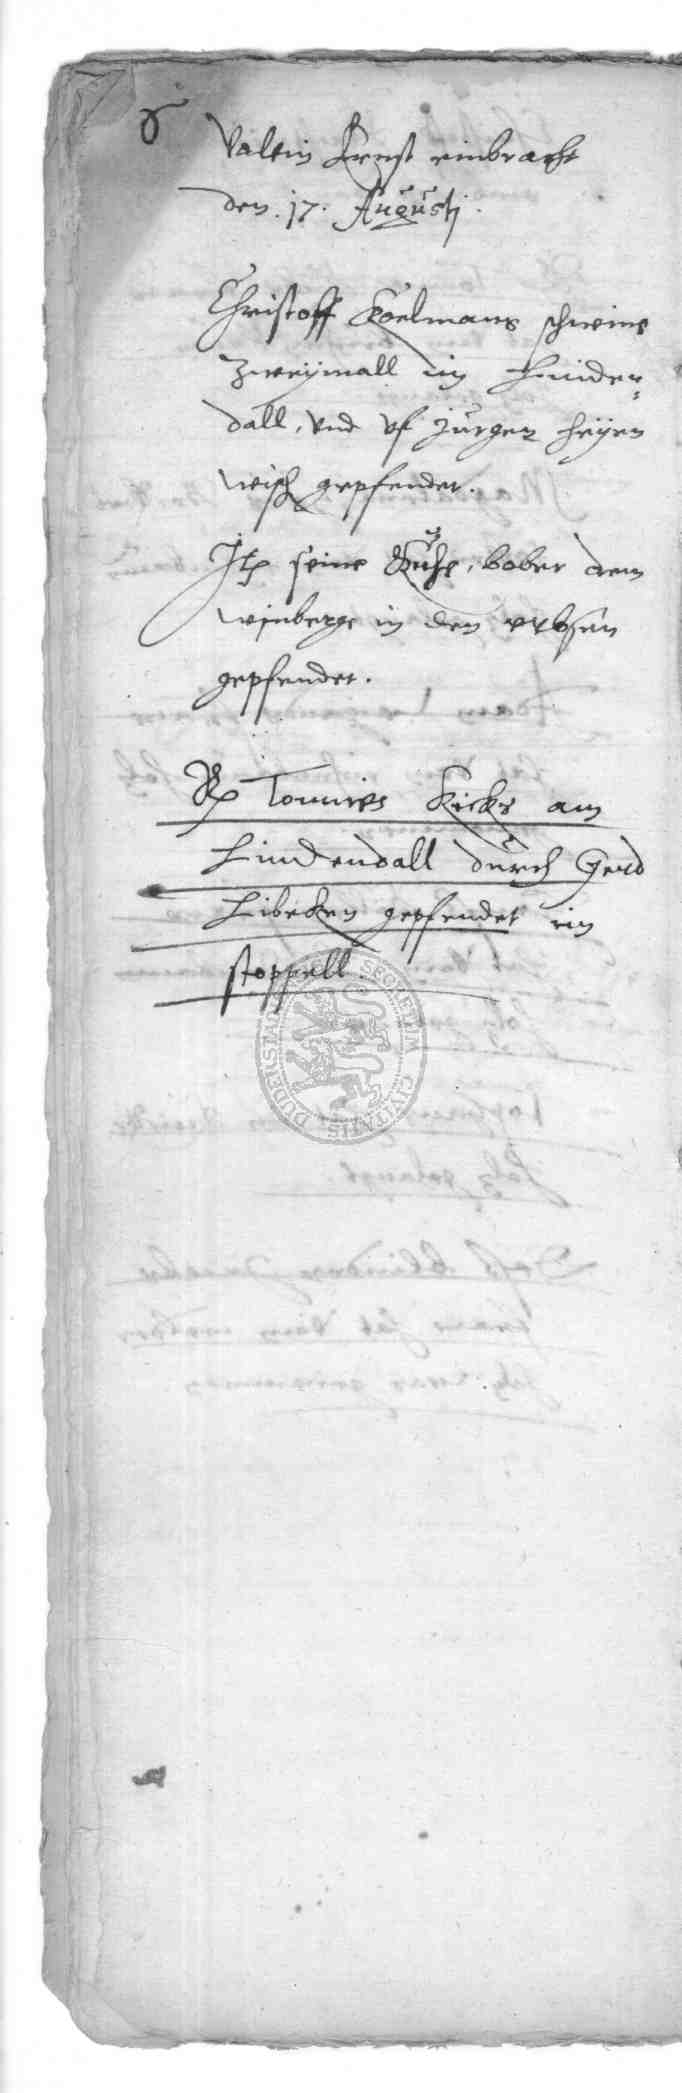 Valtin Ernst einbracht
den. 17. Augusti.
Christoff Koelmans schweine
Zweymall im Linden-
dall, vnd vf Jurgen Heyen
wisch gepfendet.
Jtem seine Kuhe, bober dem
winberge in den erbsen
gepfendet.
Tonnies Kicks am
Lindendall durch Gerd
Libeken gepfendet im
stoppell.
SECRETUM CIVITATIS DUDERSTAD